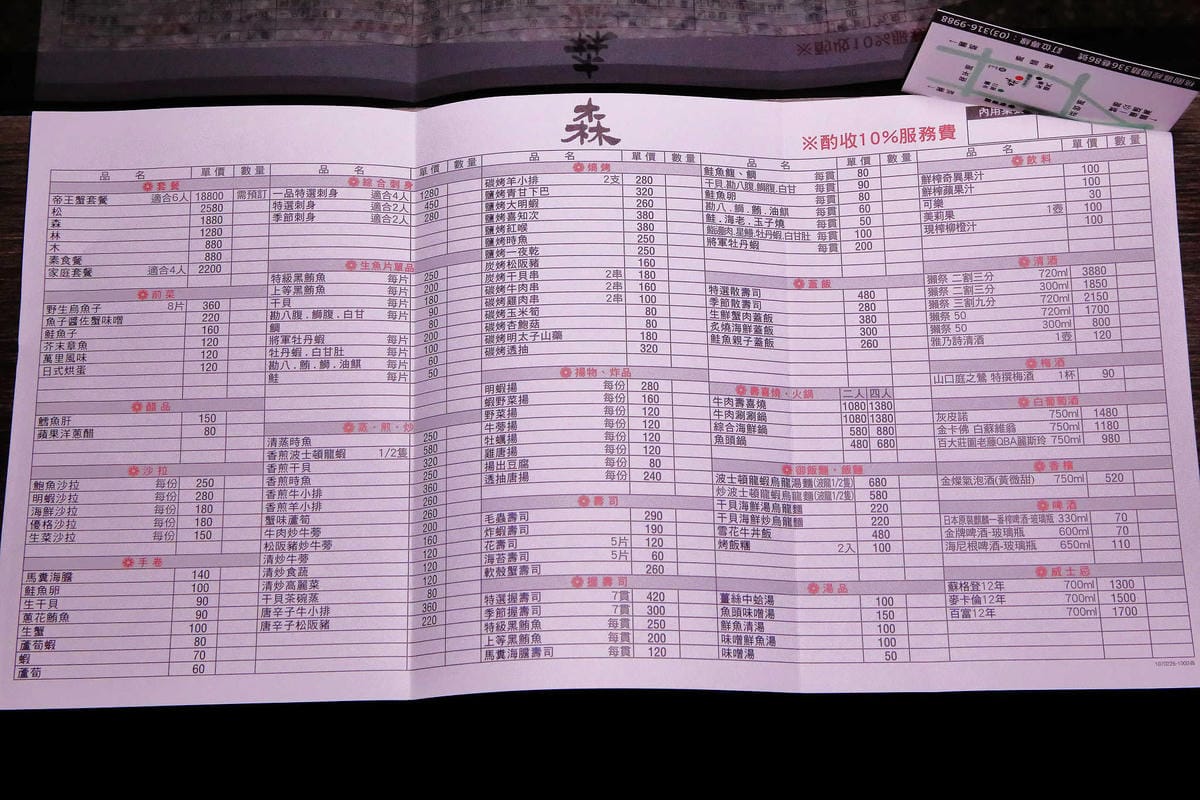 森
※酌收10%服務費
訂位專線：(03)316-9988
品 名 單價 數量
套餐
帝王蟹套餐 適合6人 18800 需預訂
松 2580
森 1880
林 1280
木 880
素食餐 880
家庭套餐 適合4人 2200
前菜
野生烏魚子 8片 360
魚子醬佐蟹味噌 220
鮭魚子 160
芥末章魚 120
萬里風味 120
日式烘蛋 120
醋品
鱈魚肝 150
蘋果洋蔥醋 80
沙拉
鮑魚沙拉 每份 250
明蝦沙拉 每份 280
海鮮沙拉 每份 180
優格沙拉 每份 180
生菜沙拉 每份 150
手卷
馬糞海膽 140
鮭魚卵 100
生干貝 90
蔥花鮪魚 90
生蟹 100
蘆筍蝦 80
蝦 70
蘆筍 60
品 名 單價 數量
綜合刺身
一品特選刺身 適合4人 1280
特選刺身 適合2人 450
季節刺身 適合2人 280
生魚片單品
特級黑鮪魚 每片 250
上等黑鮪魚 每片 200
干貝 每片 180
勘八腹.鰤腹.白甘 每片 90
鯛 80
將軍牡丹蝦 每片 200
牡丹蝦.白甘肚 每片 100
勘八.鮪.鰤.油麒 每片 60
鮭 每片 50
蒸.煎.炒
清蒸時魚 250
香煎波士頓龍蝦 1/2隻 580
香煎干貝 320
香煎時魚 250
香煎牛小排 360
香煎羊小排 260
蟹味蘆筍 260
牛肉炒牛蒡 200
松阪豬炒牛蒡 160
清炒牛蒡 120
清炒食蔬 120
清炒高麗菜 120
干貝茶碗蒸 80
唐辛子牛小排 360
唐辛子松阪豬 220
品 名 單價 數量
燒烤
碳烤羊小排 2支 280
鹽烤青甘下巴 320
鹽烤大明蝦 260
鹽烤喜知次 380
鹽烤紅喉 380
鹽烤時魚 250
鹽烤一夜乾 250
炭烤松阪豬 160
炭烤干貝串 2串 180
碳烤牛肉串 2串 160
碳烤雞肉串 2串 100
碳烤玉米筍 80
碳烤杏鮑菇 80
碳烤明太子山藥 180
碳烤透抽 320
揚物、炸品
明蝦揚 每份 280
蝦野菜揚 每份 160
野菜揚 每份 120
牛蒡揚 每份 120
牡蠣揚 每份 120
雞唐揚 每份 120
揚出豆腐 每份 80
透抽唐揚 每份 240
壽司
毛蟲壽司 290
炸蝦壽司 190
花壽司 5片 120
海苔壽司 5片 60
軟殼蟹壽司 260
握壽司
特選握壽司 7貫 420
季節握壽司 7貫 300
特級黑鮪魚 每貫 250
上等黑鮪魚 每貫 200
馬糞海膽壽司 每貫 120
品 名 單價 數量
鮭魚腹、鯛 每貫 80
干貝.勘八腹.鰤腹.白甘 每貫 90
鮭魚卵 每貫 80
勘八.鰤.鮪.油麒 每貫 60
鮭.海老.玉子燒 每貫 50
每貫 100
將軍牡丹蝦 每貫 200
蓋飯
特選散壽司 480
季節散壽司 280
生鮮蟹肉蓋飯 380
炙燒海鮮蓋飯 300
鮭魚親子蓋飯 260
壽喜燒、火鍋 二人 四人
牛肉壽喜燒 1080 1380
牛肉涮涮鍋 1080 1380
綜合海鮮鍋 580 880
魚頭鍋 480 680
御飯麵、飯麵
波士頓龍蝦烏龍湯麵(波龍1/2隻) 680
炒波士頓龍蝦烏龍麵(波龍1/2隻) 580
干貝海鮮湯烏龍麵 220
干貝海鮮炒烏龍麵 220
雪花牛丼飯 480
烤飯糰 2入 100
湯品
薑絲中蛤湯 100
魚頭味噌湯 150
鮮魚清湯 100
味噌鮮魚湯 100
味噌湯 50
品 名 單價 數量
飲料
鮮榨奇異果汁 100
鮮榨蘋果汁 100
可樂 30
美莉果 1壺 100
現榨柳橙汁 100
清酒
獺祭 二割三分 720ml 3880
獺祭 二割三分 300ml 1850
獺祭 三割九分 720ml 2150
獺祭 50 720ml 1700
獺祭 50 300ml 800
雅乃詩清酒 1壺 120
梅酒
山口庭之鶯 特撰梅酒 1杯 90
白葡萄酒
灰皮諾 750ml 1480
金卡佛 白蘇維翁 750ml 1180
百大莊園老藤QBA麗斯玲 750ml 980
香檳
金燦氣泡酒(黃微甜) 750ml 520
啤酒
日本原裝麒麟一番榨啤酒-玻璃瓶 330ml 70
金牌啤酒-玻璃瓶 600ml 70
海尼根啤酒-玻璃瓶 650ml 110
威士忌
蘇格登12年 700ml 1300
麥卡倫12年 700ml 1500
百富12年 700ml 1700